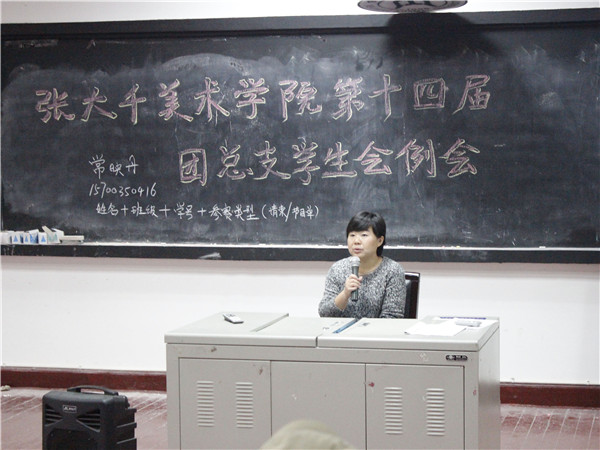 张大千美术学院第十四届
团总支学生会例会
常映丹
15700350416
姓名+班级+学号+参赛类型(请柬/节目单)